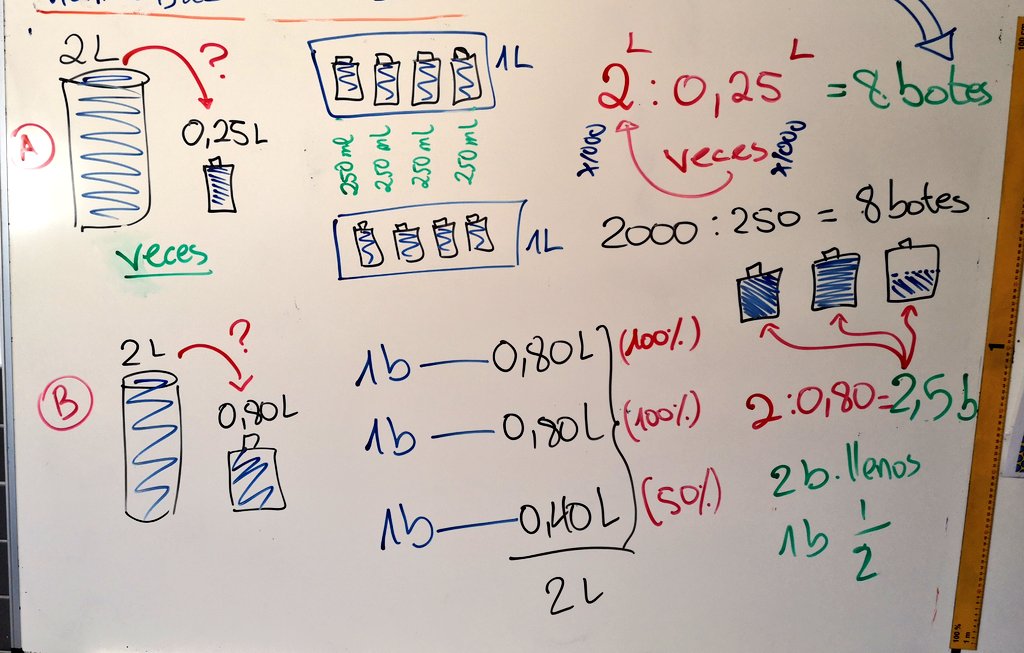 A
2L
?
0,25L
veces
1L
250 ml
250 ml
250 ml
250 ml
1L
L L
2 : 0,25 = 8 botes
x1000 veces x1000
2000 : 250 = 8 botes
B
2L
?
0,80L
1b — 0,80L (100%)
1b — 0,80L (100%)
1b — 0,40L (50%)
2L
2 : 0,80 = 2,5 b
2 b. llenos
1b 1/2
1
100 %
1 m